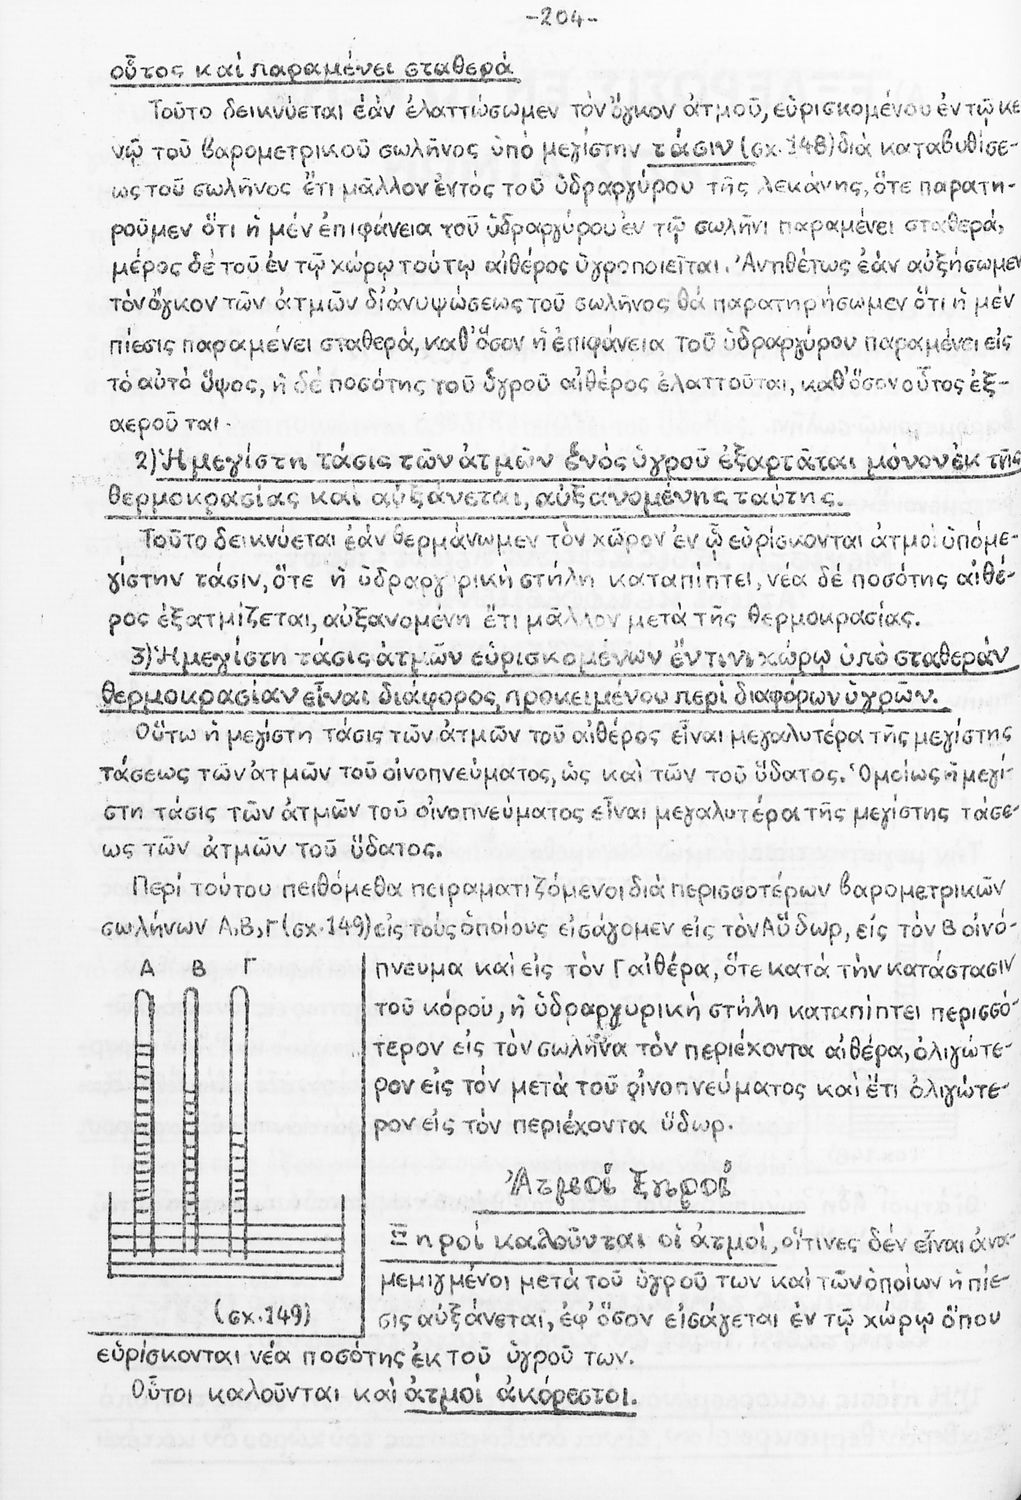 -204-
οὗτος καὶ παραμένει σταθερά
Τοῦτο δεικνύεται ἐάν ἐλαττώσωμεν τόν ὄγκον ἀτμοῦ, εὑρισκομένου ἐν τῷ κε
νῷ τοῦ βαρομετρικοῦ σωλῆνος ὑπό μεγίστην τάσιν (σχ.148) διά καταβυθίσε-
ως τοῦ σωλῆνος ἔτι μᾶλλον ἐντός τοῦ ὑδραργύρου τῆς λεκάνης, ὅτε παρατη-
ροῦμεν ὅτι ἡ μέν ἐπιφάνεια τοῦ ὑδραργύρου ἐν τῷ σωλῆνι παραμένει σταθερά,
μέρος δέ τοῦ ἐν τῷ χώρῳ τούτῳ αἰθέρος ὑγροποιεῖται. Ἀντιθέτως ἐάν αὐξήσωμεν
τόν ὄγκον τῶν ἀτμῶν δι' ἀνυψώσεως τοῦ σωλῆνος θά παρατηρήσωμεν ὅτι ἡ μέν
πίεσις παραμένει σταθερά, καθ' ὅσον ἡ ἐπιφάνεια τοῦ ὑδραργύρου παραμένει εἰς
τό αὐτό ὕψος, ἡ δέ ποσότης τοῦ ὑγροῦ αἰθέρος ἐλαττοῦται, καθ' ὅσον οὗτος ἐξ-
αεροῦται.
2) Ἡ μεγίστη τάσις τῶν ἀτμῶν ἑνός ὑγροῦ ἐξαρτᾶται μόνον ἐκ τῆς
θερμοκρασίας καί αὐξάνεται, αὐξανομένης ταύτης.
Τοῦτο δεικνύεται ἐάν θερμάνωμεν τόν χῶρον ἐν ᾧ εὑρίσκονται ἀτμοί ὑπό με-
γίστην τάσιν, ὅτε ἡ ὑδραργυρική στήλη καταπίπτει, νέα δέ ποσότης αἰθέ-
ρος ἐξατμίζεται, αὐξανομένη ἔτι μᾶλλον μετά τῆς θερμοκρασίας.
3) Ἡ μεγίστη τάσις ἀτμῶν εὑρισκομένων ἔν τινι χώρῳ ὑπό σταθεράν
θερμοκρασίαν εἶναι διάφορος, προκειμένου περί διαφόρων ὑγρῶν.
Οὕτω ἡ μεγίστη τάσις τῶν ἀτμῶν τοῦ αἰθέρος εἶναι μεγαλυτέρα τῆς μεγίστης
τάσεως τῶν ἀτμῶν τοῦ οἰνοπνεύματος, ὡς καί τῶν τοῦ ὕδατος. Ὁμοίως ἡ μεγί-
στη τάσις τῶν ἀτμῶν τοῦ οἰνοπνεύματος εἶναι μεγαλυτέρα τῆς μεγίστης τάσε-
ως τῶν ἀτμῶν τοῦ ὕδατος.
Περί τούτου πειθόμεθα πειραματιζόμενοι διά περισσοτέρων βαρομετρικῶν
σωλήνων Α,Β,Γ (σχ.149) εἰς τούς ὁποίους εἰσάγομεν εἰς τόν Α ὕδωρ, εἰς τόν Β οἰνό-
πνευμα καί εἰς τόν Γ αἰθέρα, ὅτε κατά τήν κατάστασιν
τοῦ κόρου, ἡ ὑδραργυρική στήλη καταπίπτει περισσό-
τερον εἰς τόν σωλῆνα τόν περιέχοντα αἰθέρα, ὀλιγώτε-
ρον εἰς τόν μετά τοῦ οἰνοπνεύματος καί ἔτι ὀλιγώτε-
ρον εἰς τόν περιέχοντα ὕδωρ.
Α Β Γ
(σχ.149)
Ἀτμοί ξηροί
Ξηροί καλοῦνται οἱ ἀτμοί, οἵτινες δέν εἶναι ἀνα-
μεμιγμένοι μετά τοῦ ὑγροῦ των καί τῶν ὁποίων ἡ πίε-
σις αὐξάνεται, ἐφ' ὅσον εἰσάγεται ἐν τῷ χώρῳ ὅπου
εὑρίσκονται νέα ποσότης ἐκ τοῦ ὑγροῦ των.
Οὗτοι καλοῦνται καί ἀτμοί ἀκόρεστοι.